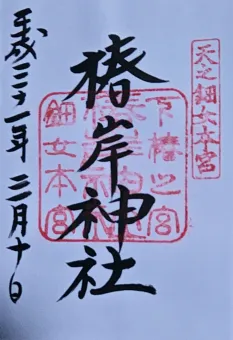 天之鈿女本宮
椿岸神社
下椿之宮
鈿女本宮
平成三十一年 三月十日